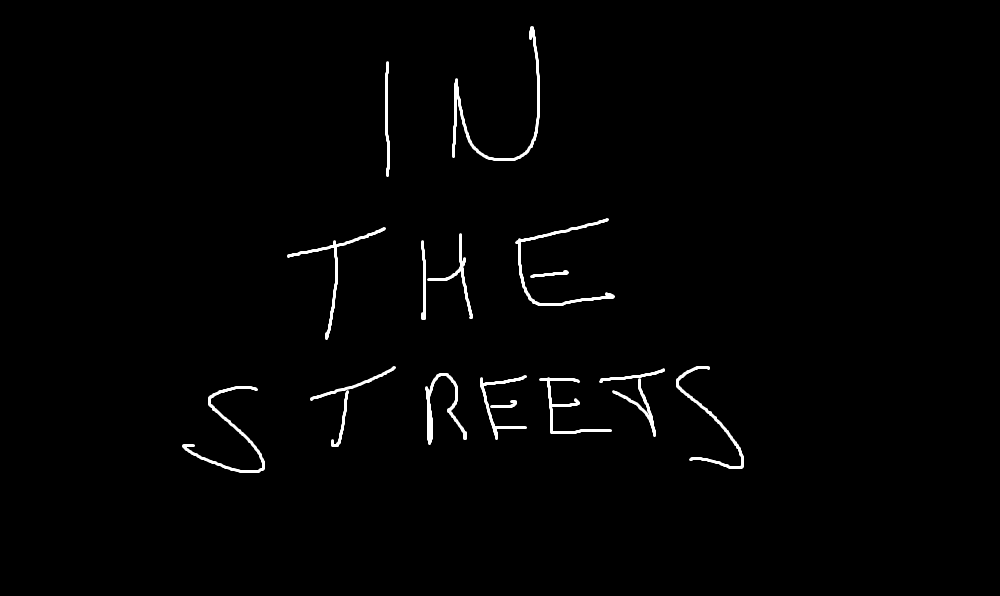 IN
THE
STREETS